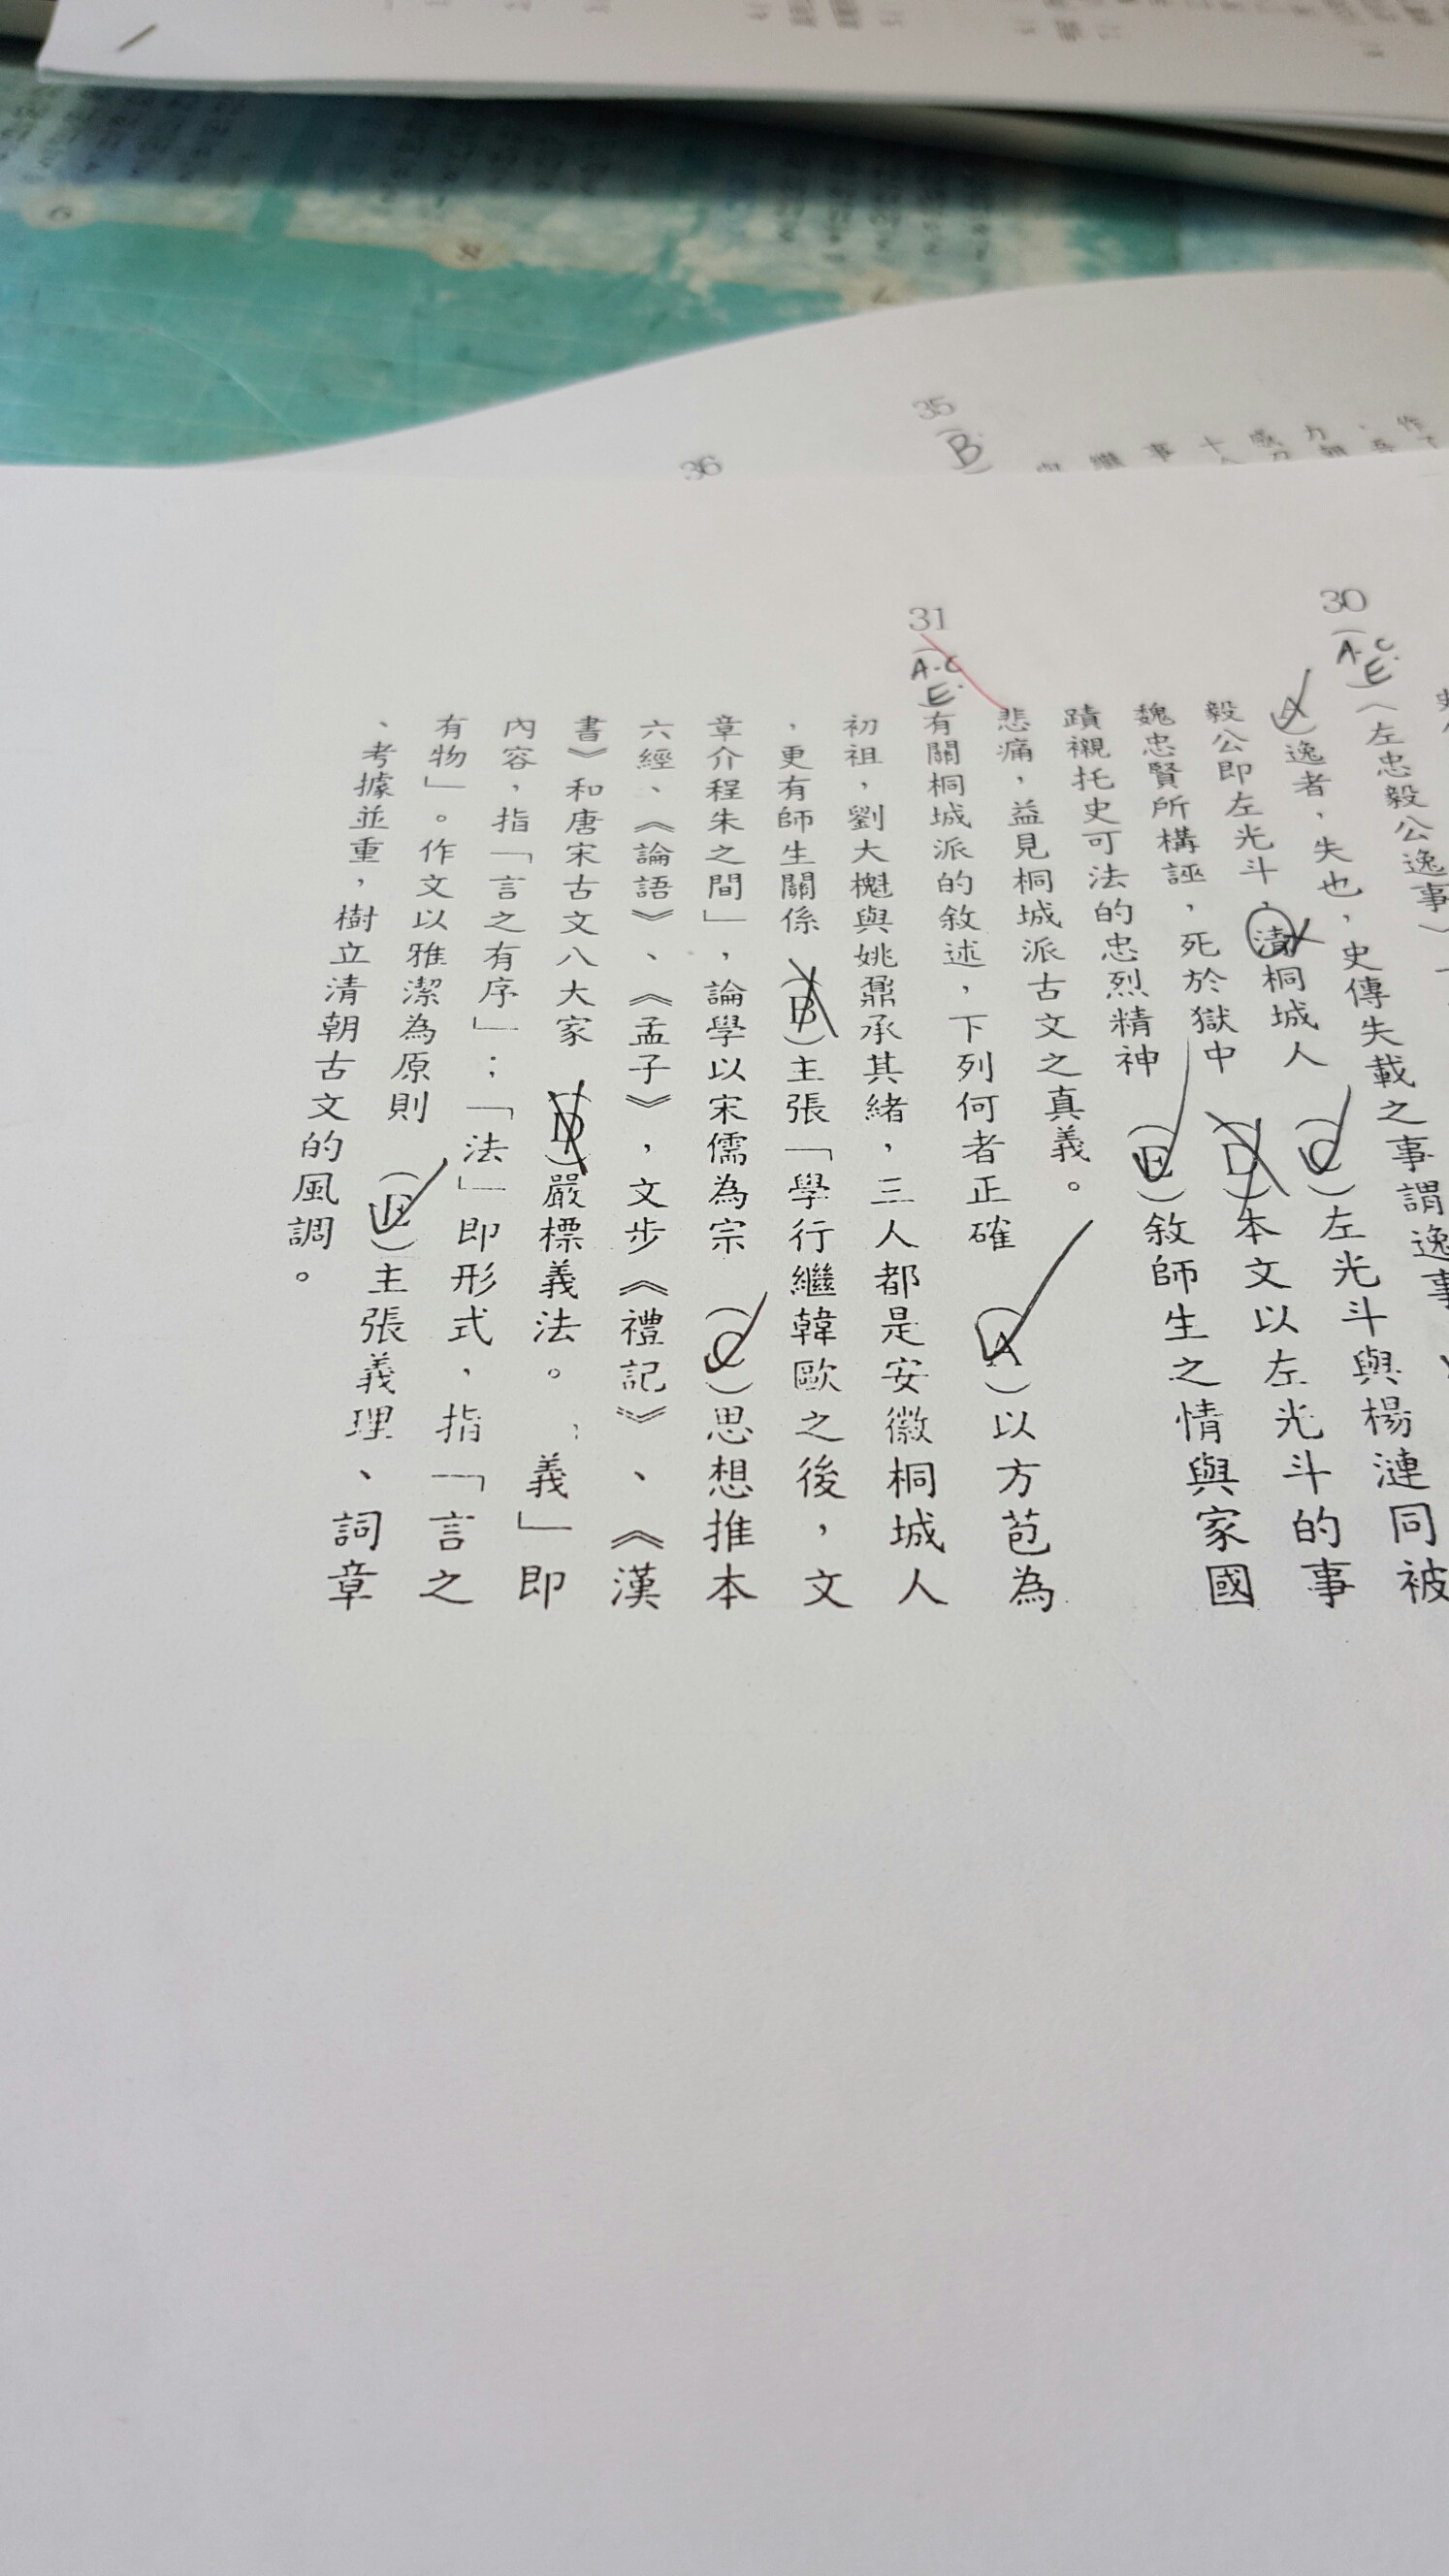 35
(B.
36
30
(A.C
E.)
〈左忠毅公逸事〉
史傳失載之事謂逸事
(A)逸者，失也，史傳失載之事謂逸事
毅公即左光斗，清桐城人
(C)左光斗與楊漣同被
魏忠賢所構誣，死於獄中
(D)本文以左光斗的事
蹟襯托史可法的忠烈精神
(E)敘師生之情與家國
悲痛，益見桐城派古文之真義。
31
(A.C
E.)
有關桐城派的敘述，下列何者正確
(A)以方苞為
初祖，劉大櫆與姚鼐承其緒，三人都是安徽桐城人
，更有師生關係
(B)主張「學行繼韓歐之後，文
章介程朱之間」，論學以宋儒為宗
(C)思想推本
六經、《論語》、《孟子》，文步《禮記》、《漢
書》和唐宋古文八大家
(D)嚴標義法。義」即
內容，指「言之有序」；「法」即形式，指「言之
有物」。作文以雅潔為原則
(E)主張義理、詞章
、考據並重，樹立清朝古文的風調。